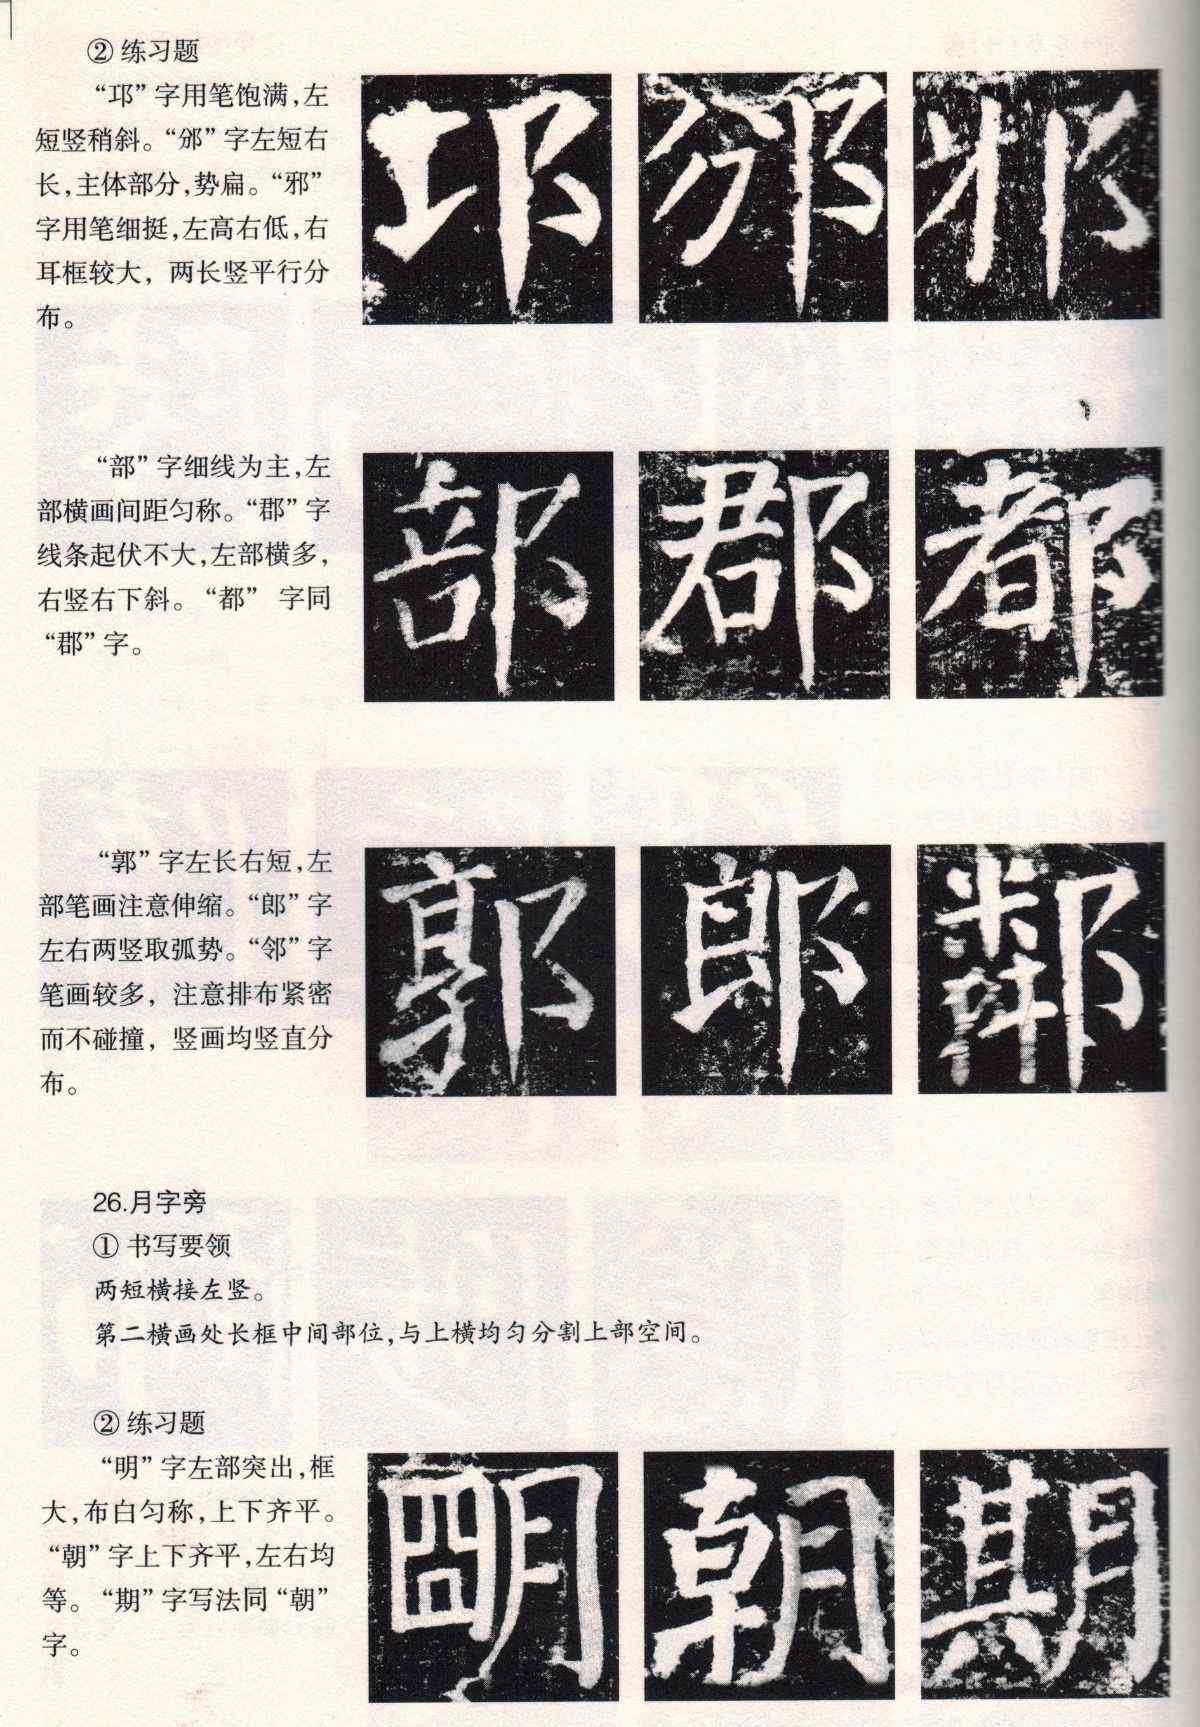 ② 练习题
“邛”字用笔饱满，左
短竖稍斜。“邠”字左短右
长，主体部分，势扁。“邪”
字用笔细挺，左高右低，右
耳框较大，两长竖平行分
布。
邛 邠 邪
“部”字细线为主，左
部横画间距匀称。“郡”字
线条起伏不大，左部横多，
右竖右下斜。“都” 字同
“郡”字。
部 郡 都
“郭”字左长右短，左
部笔画注意伸缩。“郎”字
左右两竖取弧势。“邻”字
笔画较多，注意排布紧密
而不碰撞，竖画均竖直分
布。
郭 郎 鄰
26.月字旁
① 书写要领
两短横接左竖。
第二横画处长框中间部位，与上横均匀分割上部空间。
② 练习题
“明”字左部突出，框
大，布白匀称，上下齐平。
“朝”字上下齐平，左右均
等。“期”字写法同“朝”
字。
朙 朝 期